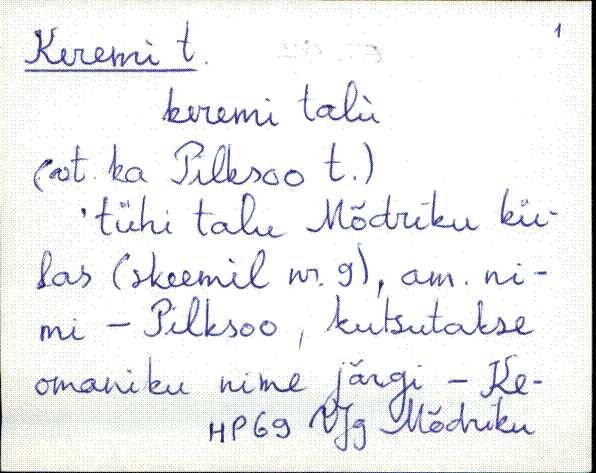 1
Keremi t.
keremi talu
(vt. ka Pilksoo t.)
'tühi talu Mõdriku kü-
las (skeemil nr. 9), am. ni-
mi – Pilksoo, kutsutakse
omaniku nime järgi – Ke-
HP69 VJg Mõdriku